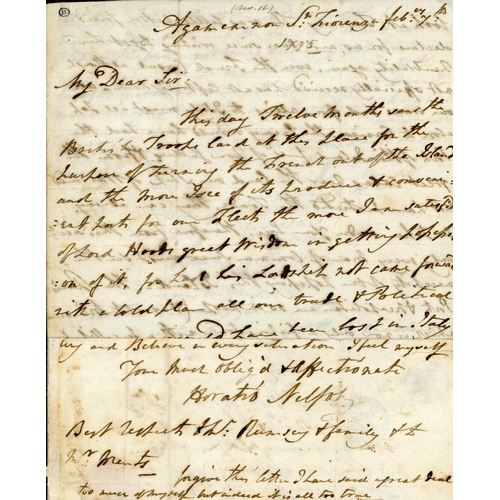 (Nov. 16.)
Agamemnon St: Fiorenzo feb:ry 7th
1795
My Dear Sir.
This day Twelve Months saw the
British Troops land at this place for the
purpose of turning the French out of the Island
and the more I see of its produce & conveni=
=ent ports for our Fleets the more I am satisfied
of Lord Hoods great Wisdom in getting possessi
=on of it, for had his Lordship not came forward
with a bold plan all our trade & Political
have been lost in Italy
and Believe in every situation I feel myself
Your Most Oblig'd & affectionate
Horatio Nelson
Best respects to Mrs: Rumsey & family & to
Mr
forgive this letter I have said a great deal
too much of myself but indeed it is all too true